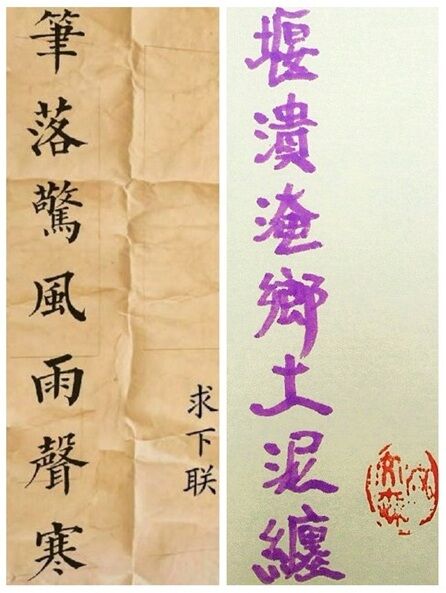 筆落驚風雨聲寒
求下联
堰潰淹鄉土泥纏